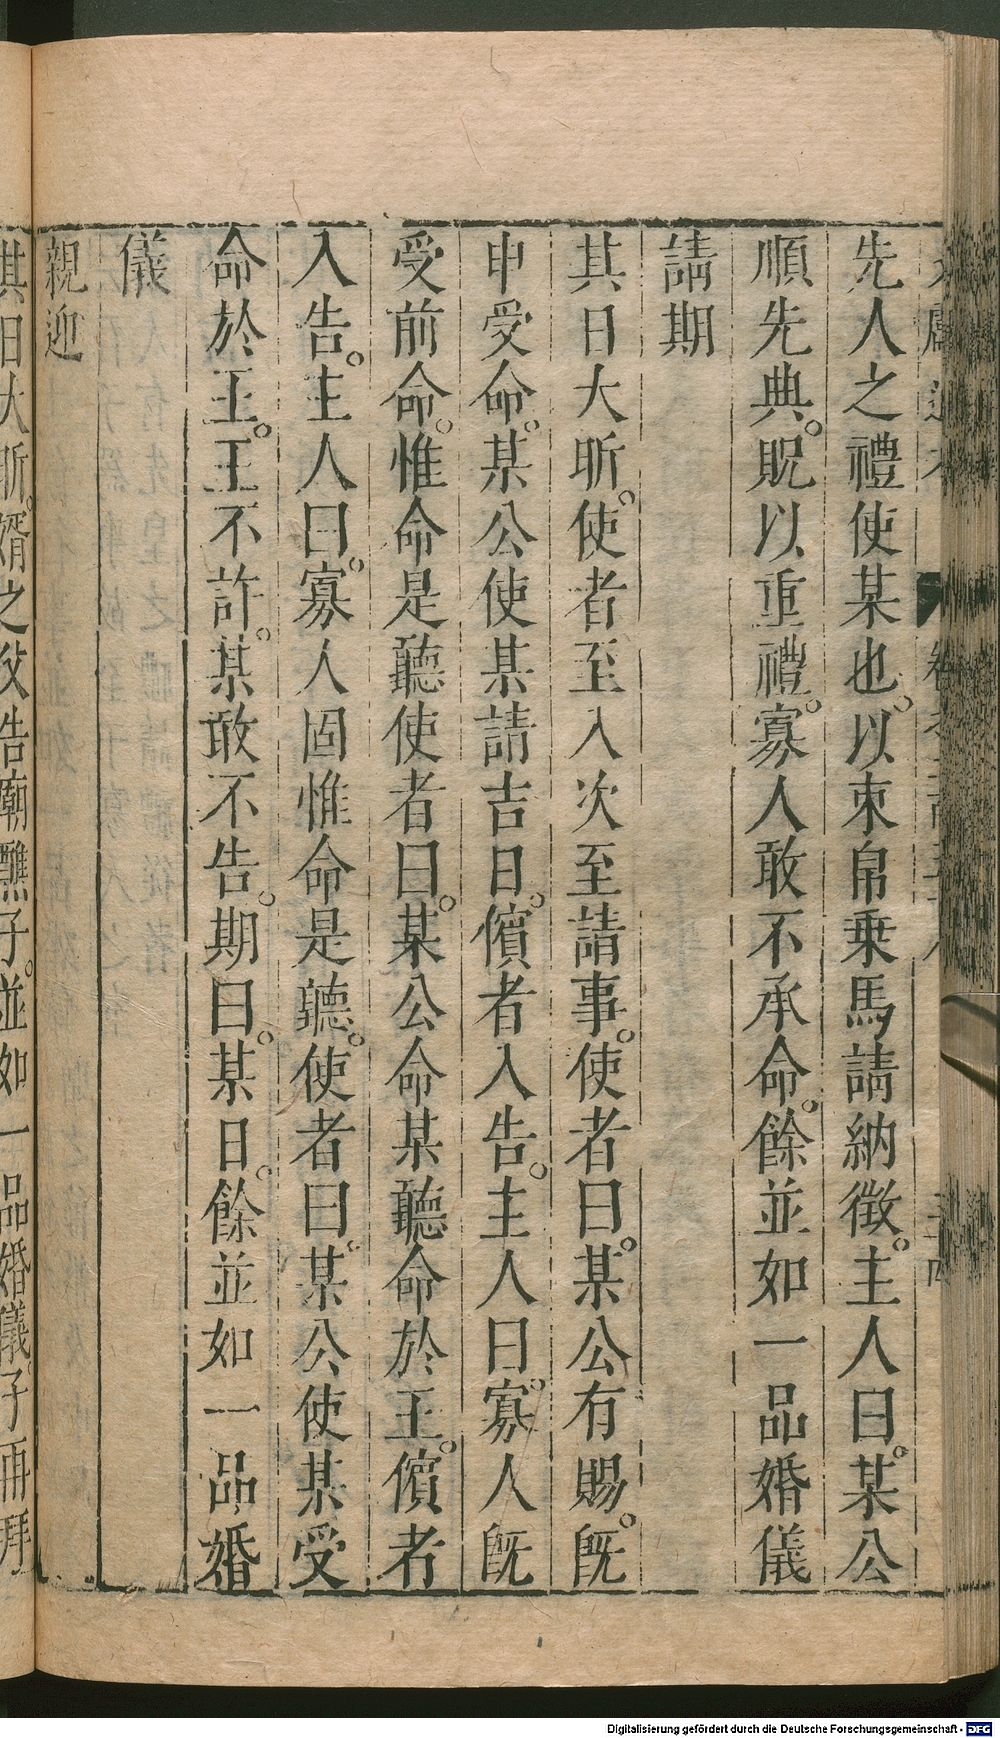 先人之禮使某也。以束帛乗馬請納徴。主人曰。某公
順先典。貺以重禮。寡人敢不承命。餘並如一品婚儀
請期
其日大昕。使者至入次至請事。使者曰。某公有賜。旣
申受命。某公使某請吉日。儐者入告。主人曰。寡人旣
受前命。惟命是聽使者曰。某公命某聽命於王。儐者
入告。主人曰。寡人固惟命是聽。使者曰。某公使某受
命於王。王不許。某敢不告。期曰。某日。餘並如一品婚
儀
親迎
其日大昕。婿之父告廟醮子。並如一品婚儀。子再拜
Digitalisierung gefördert durch die Deutsche Forschungsgemeinschaft - DFG